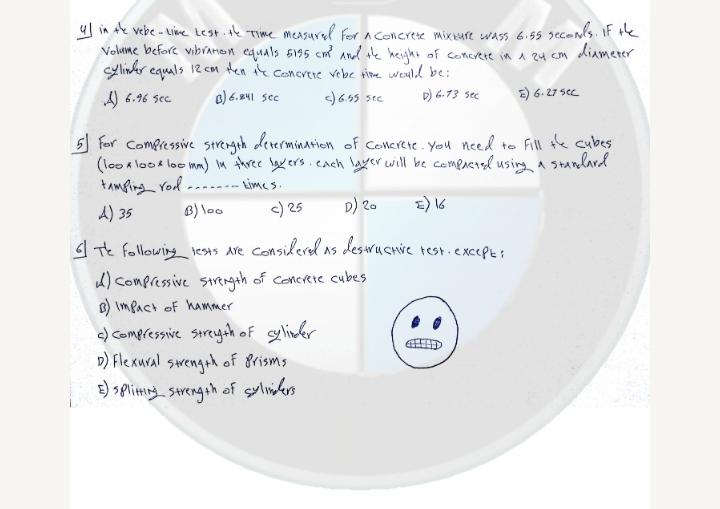 4] in the vebe-time test. the Time measured For a concrete mixture wass 6.55 seconds. IF the
Volume before vibration equals 5195 cm³ and the height of concrete in a 24 cm diameter
cylinder equals 12 cm then the concrete vebe time would be:
A) 6.96 sec B) 6.841 sec c) 6.55 sec D) 6.73 sec E) 6.27 sec
5] For compressive strength determination of concrete. you need to Fill the cubes
(100 x 100 x 100 mm) in three layers. each layer will be compacted using a standard
tamping rod -------- times.
A) 35 B) 100 c) 25 D) 20 E) 16
6] The Following tests are considered as destructive test. except:
A) compressive strength of concrete cubes
B) impact of hammer
c) compressive strength of cylinder
D) Flexural strength of Prisms
E) splitting strength of cylinders
M